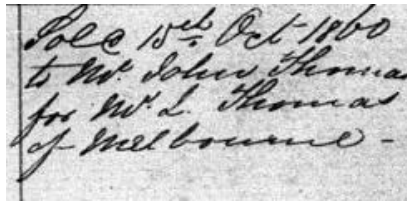 Sold 15th Oct 1860
to Mr. John Thomas
for Mr. L. Thomas
of Melbourne -